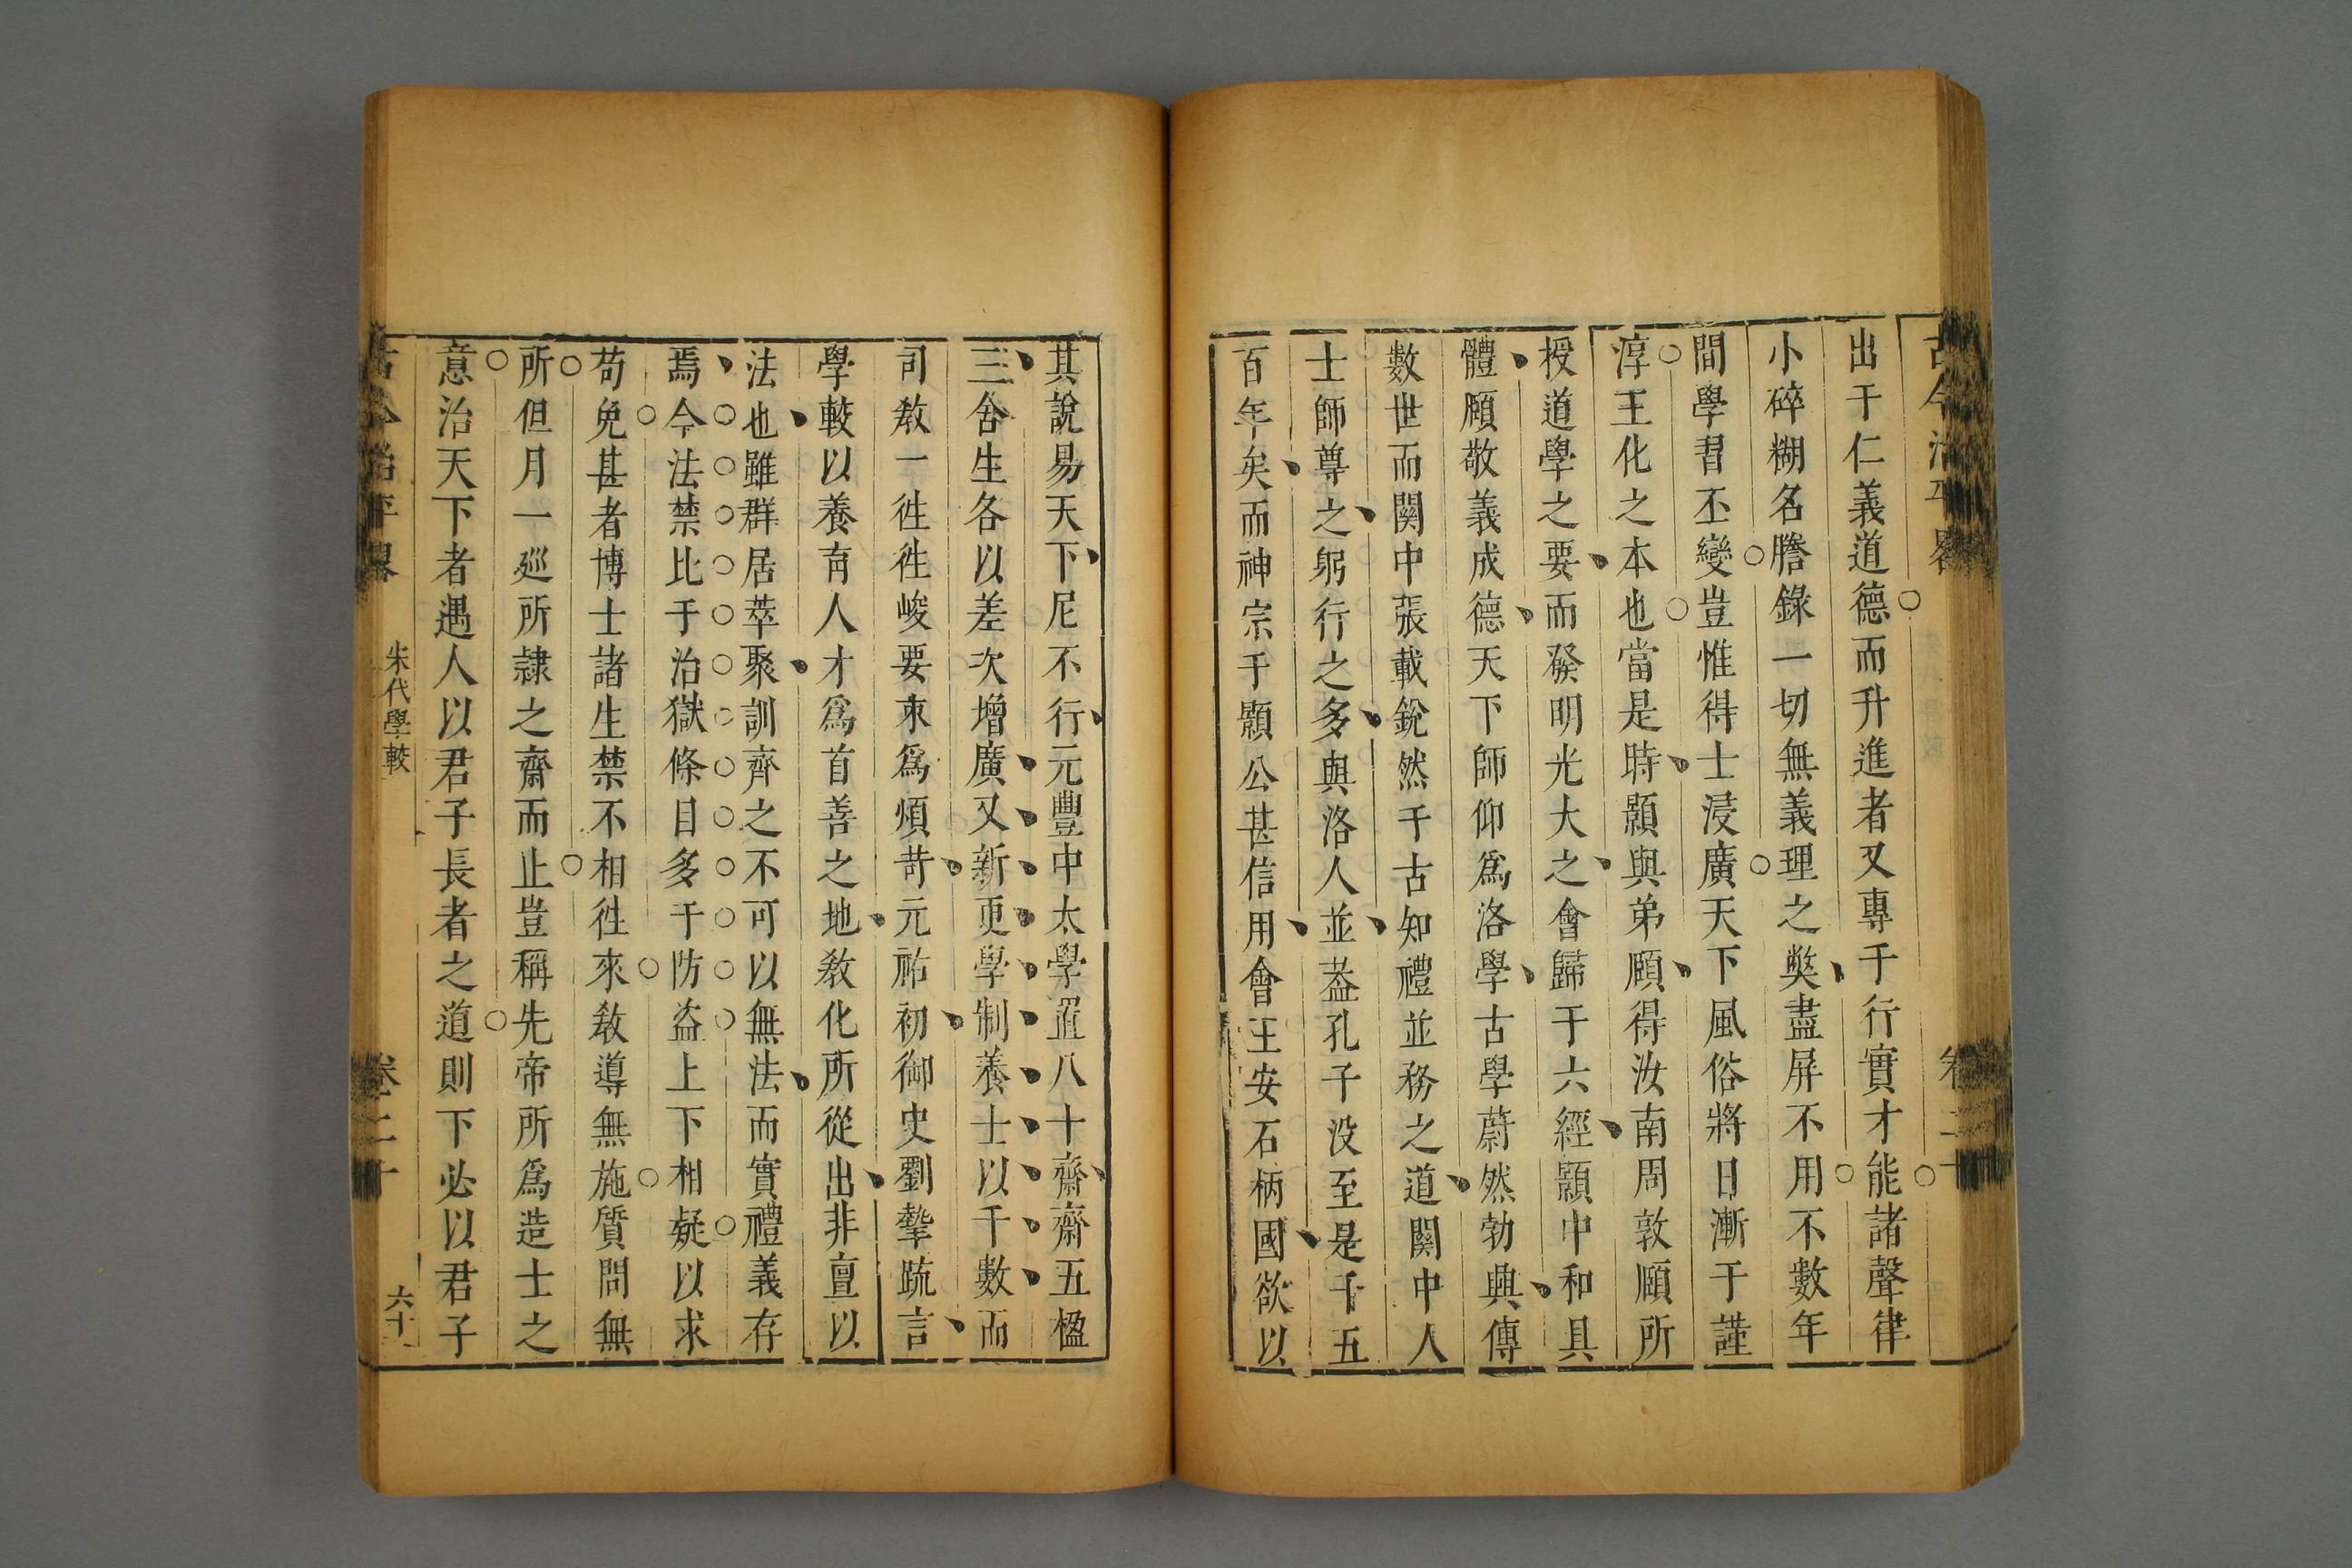 古今治平畧
卷二十
出于仁義道德而升進者又專于行實才能諸聲律
小碎糊名謄錄一切無義理之獘盡屏不用不數年
間學者丕變豈惟得士浸廣天下風俗將日漸于謹
淳王化之本也當是時顥與弟頤得汝南周敦頤所
授道學之要而發明光大之會歸于六經顥中和具
體頤敬義成德天下師仰爲洛學古學蔚然勃興傳
數世而關中張載銳然千古知禮並務之道關中人
士師尊之躬行之多與洛人並葢孔子没至是千五
百年矣而神宗于顥公甚信用會王安石柄國欲以
其說易天下尼不行元豐中太學置八十齋齋五楹
三舍生各以差次增廣又新更學制養士以千數而
司敎一徃徃峻要束爲煩苛元祐初御史劉摯疏言
學較以養育人才爲首善之地敎化所從出非亶以
法也雖群居萃聚訓齊之不可以無法而實禮義存
焉今法禁比于治獄條目多于防盜上下相疑以求
苟免甚者博士諸生禁不相徃來敎導無施質問無
所但月一廵所隷之齋而止豈稱先帝所爲造士之
意治天下者遇人以君子長者之道則下必以君子
古今治平畧
朱代學較
卷二十
六十一